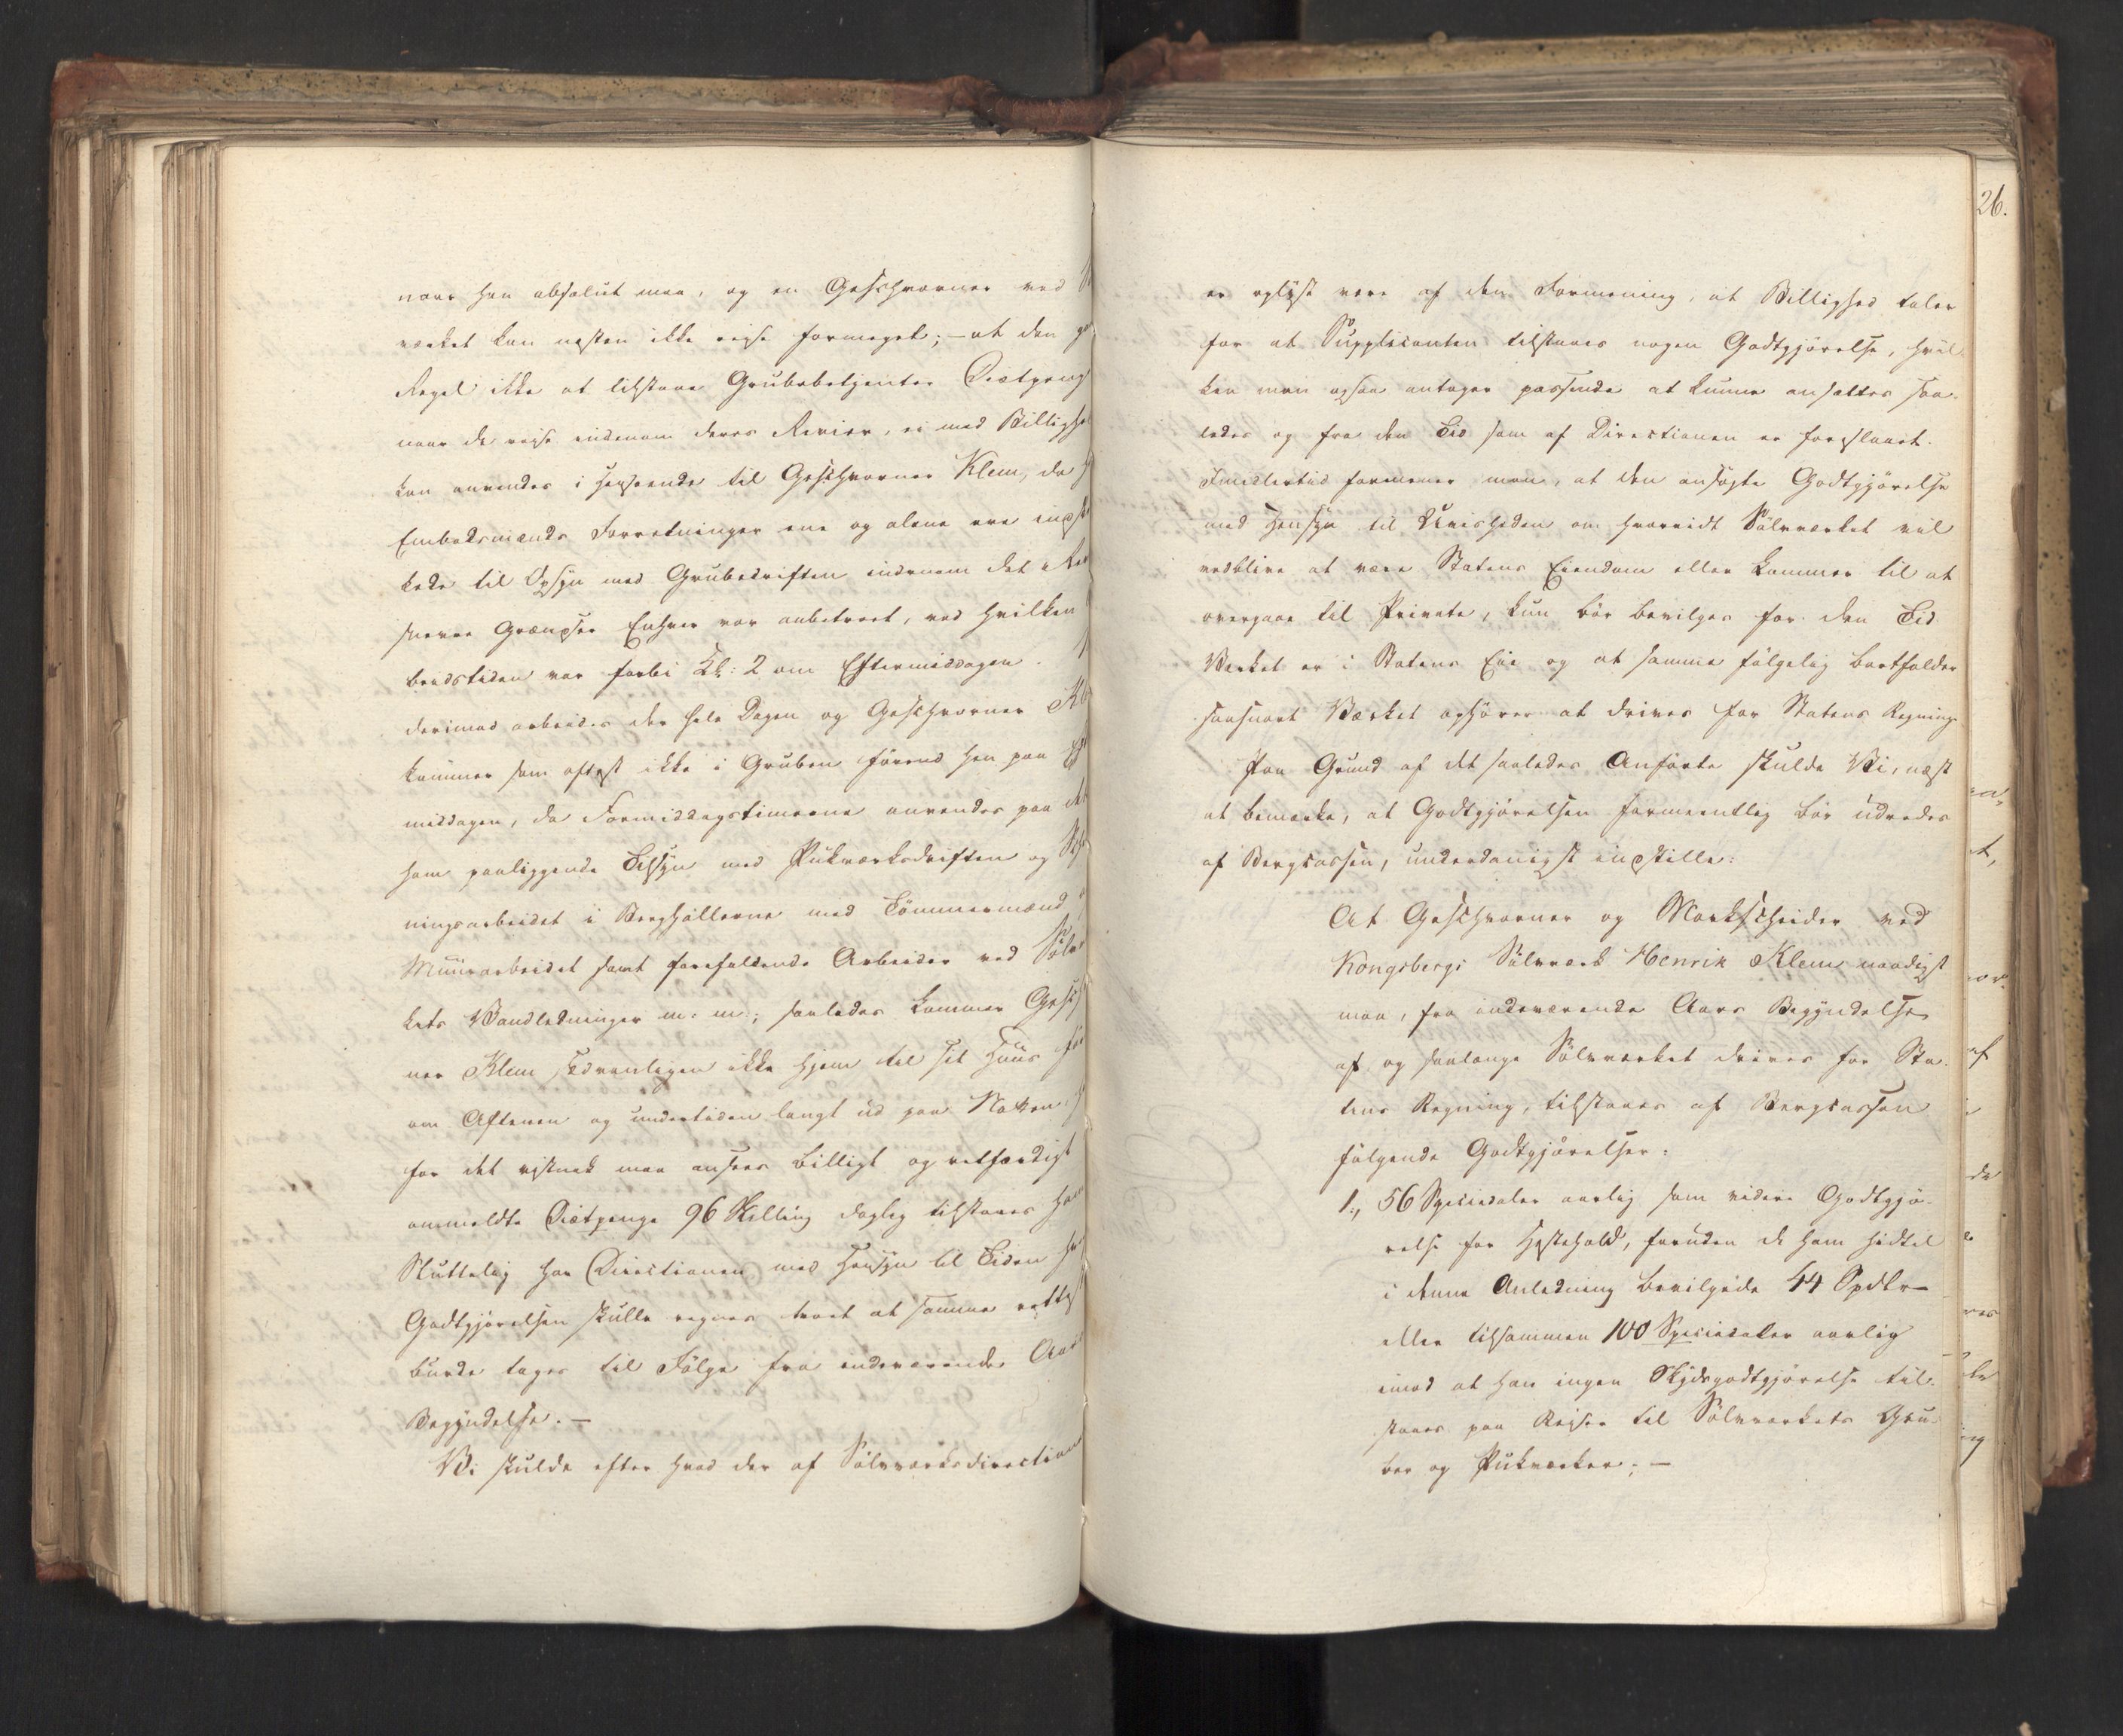 naar han absolut maa, og en Geschvorner ved
værket kan næsten ikke reise formeget; – at den
Regel ikke at tilstaae Grubebetjenter Diætpeng
naar de reise indenom deres Revier, ei med Billighe
kan anvendes i Henseende til Geschvorner Klem, da
Embedsmænds Forretninger ene og alene ere indsk
kede til Opsyn med Grubedriften indenom det
snevre Grændser Enhver var anbetroet, ved hvilken
beidstiden var forbi Kl: 2 om Eftermiddagen.
derimod arbeides der hele Dagen og Geschvorner Kl
kommer som oftest ikke i Gruben førend hen paa Ef
middagen, da Formiddagstimerne anvendes paa det
ham paaliggende Tilsyn med Pukværksdriften og
ningsarbeidet i Berghallerne med Tømmermænd
Muurarbeidet samt forefaldende Arbeider ved Sølv
kets Vandledninger m: m:; saaledes kommer Gesch
ner Klem sædvanligen ikke hjem til sit Huus før
om Aftenen og undertiden langt ud paa Natten,
for det vistnok maa ansees billigt og retfærdigt
ommeldte Diætpenge 96 Skilling daglig tilstaaes ham
Sluttelig har Directionen med Hensyn til Tiden
Godtgjørelsen skulle regnes troet at samme rettest
burde tages til Følge fra indeværende Aar
Begyndelse. –
Vi skulde efter hvad der af Sølvværksdirection
26.
er oplyst være af den Formening, at Billighed taler
for at Supplicanten tilstaaes nogen Godtgjørelse, hvil
ken man ogsaa antager passende at kunne ansættes saa-
ledes og fra den Tid som af Directionen er foreslaaet.
Imidlertid formener man, at den ansøgte Godtgjørelse
med Hensyn til Uvisheden om hvorvidt Sølvværket vil
vedblive at være Statens Eiendom eller kommer til at
overgaae til Private, kun bør bevilges for den Tid
Værket er i Statens Eie og at samme følgelig bortfalder
saasnart Værket ophører at drives for Statens Regning.
Paa Grund af det saaledes Anførte skulde Vi, næst
at bemærke, at Godtgjørelsen formeentlig bør udredes
af Bergcassen, underdanigst indstille:
At Geschvorner og Markscheider ved
Kongsbergs Sølvværk Henrik Klem naadigst
maa, fra indeværende Aars Begyndelse
af og saalænge Sølvværket drives for Sta-
tens Regning, tilstaaes af Bergcassen
følgende Godtgjørelser:
1., 56 Speciedaler aarlig som videre Godtgjø-
relse for Hestehold, foruden de ham hidtil
i denne Anledning bevilgede 44 Spdlr
eller tilsammen 100 Speciedaler aarlig
imod at han ingen Skydsgodtgjørelse til-
staaes paa Reiser til Sølvværkets Gru-
ber og Pukværker; –